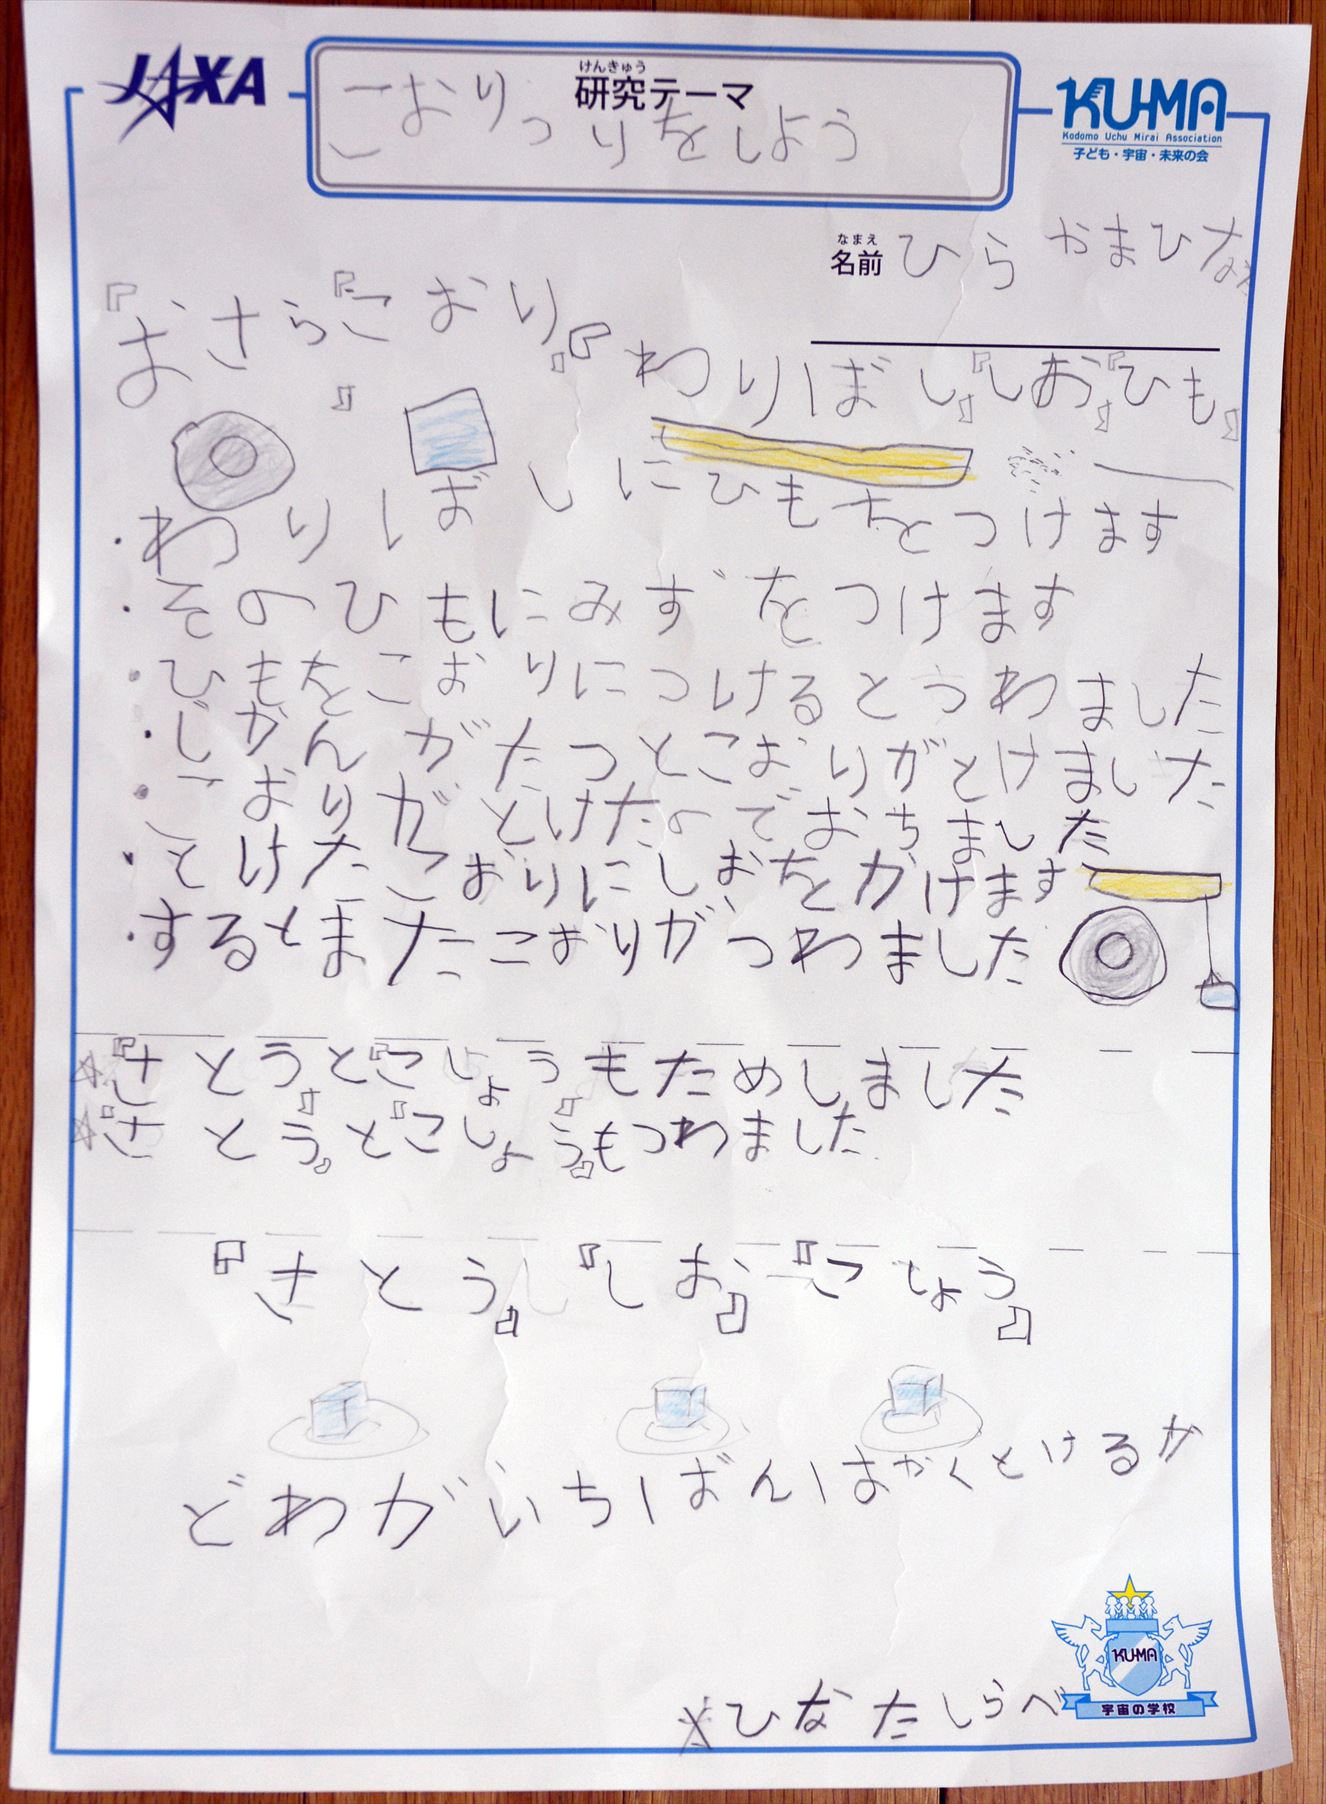 JAXA
けんきゅう
研究テーマ
こおりつりをしよう
KU-MA
Kodomo Uchu Mirai Association
子ども・宇宙・未来の会
なまえ
名前 ひらやまひなた
『おさら』『こおり』『わりばし』『しお』『ひも』
・わりばしにひもをつけます
・そのひもにみずをつけます
・ひもをこおりにつけるとつわました
・じかんがたつとこおりがとけました
・こおりがとけたのでおちました
・とけたこおりにしおをかけます
・するとまたこおりがつわました
☆『さとう』と『こしょう』もためしました
☆『さとう』と『こしょう』もつわました
『さとう』『しお』『こしょう』
どわがいちばんはかくとけるか
KU-MA
宇宙の学校
※ひなたしらべ